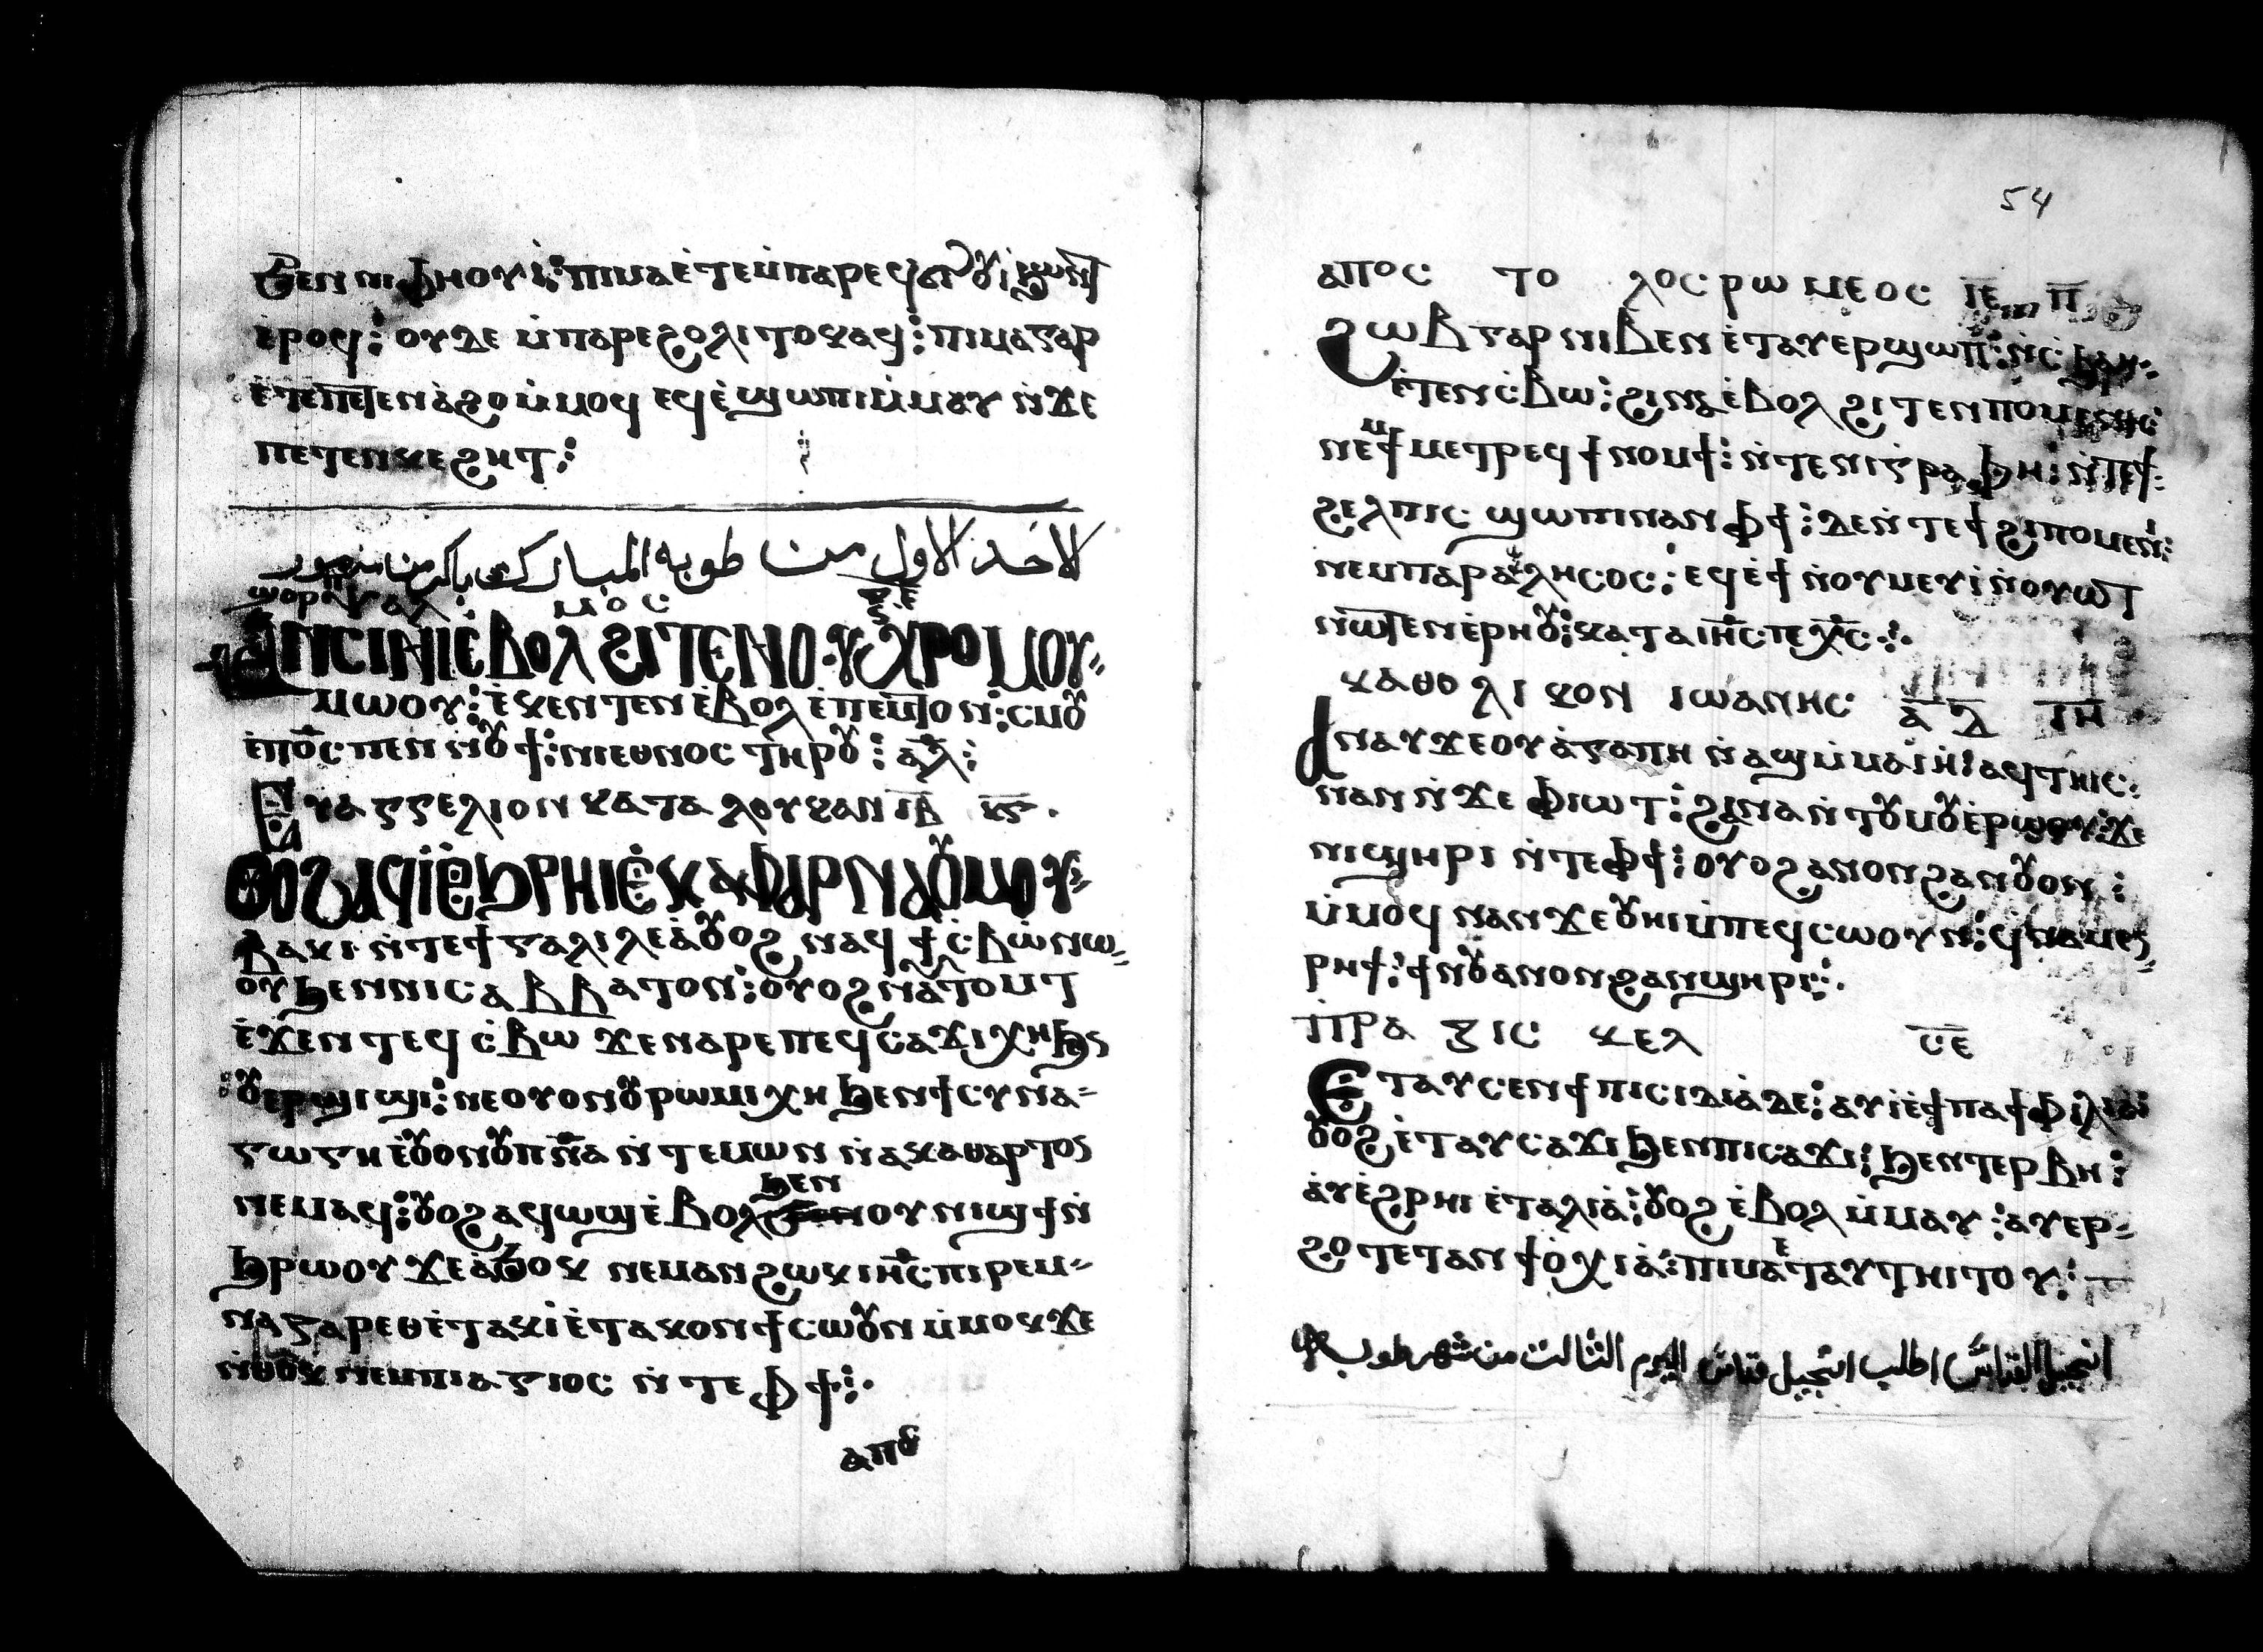 ϧⲉⲛ ⲛⲓⲫⲏⲟⲩⲓ̀: ⲡⲓⲙⲁ ⲉ̀ⲧⲉⲙ̀ⲡⲁⲣⲉϥ
ⲉ̀ⲣⲟϥ: ⲟⲩⲇⲉ ⲙ̀ⲡⲁⲣⲉϩⲟⲗⲓ ⲧⲟⲕⲁϥ: ⲡⲓⲙⲁ ⲅⲁⲣ
ⲉ̀ⲧⲉⲡⲉⲧⲉⲛⲁ̀ϩⲟ ⲙ̀ⲙⲟϥ ⲉϥⲉ̀ϣⲱⲡⲓ ⲙ̀ⲙⲁⲩ ⲛ̀ϫⲉ
ⲡⲉⲧⲉⲛⲕⲉϩⲏⲧ:
لاحد الاول من طوبه المبارك باكر من
ⲯⲁⲗ ⲙⲟⲥ
ⲁⲛⲥⲓⲛⲓ ⲉ̀ⲃⲟⲗ ϩⲓⲧⲉⲛ ⲟⲩⲭⲣⲟⲙ ⲟⲩ
ⲙⲱⲟⲩ: ⲉ̀ⲕⲉⲛⲧⲉⲛ ⲉ̀ⲃⲟⲗ ⲉ̀ⲡⲉⲙⲧⲟⲛ: ⲥⲙⲟⲩ
ⲉ̀ⲡⲟ̅ⲥ̅ ⲡⲉⲛⲛⲟⲩϯ: ⲛⲓⲉⲑⲛⲟⲥ ⲧⲏⲣⲟⲩ: ⲁ̅ⲗ̅:
ⲉⲩⲁⲅⲅⲉⲗⲓⲟⲛ ⲕⲁⲧⲁ ⲗⲟⲩⲕⲁⲛ ⲓ̅ⲃ̅ ⲕ̅ⲋ̅
ⲟⲩⲟϩ ⲁϥⲓ̀ ⲉ̀ϧⲣⲏⲓ ⲉ̀ⲕⲁⲫⲁⲣⲛⲁⲟⲩⲙ ⲟⲩ
ⲃⲁⲕⲓ ⲛ̀ⲧⲉ ϯⲅⲁⲗⲓⲗⲉⲁ̀ ⲟⲩⲟϩ ⲛⲁϥϯⲥ̀ⲃⲱ ⲛⲱ
ⲟⲩ ϧⲉⲛ ⲛⲓⲥⲁⲃⲃⲁⲧⲟⲛ: ⲟⲩⲟϩ ⲛⲁⲩⲧⲟⲙⲧ
ⲉ̀ϫⲉⲛ ⲧⲉϥⲥ̀ⲃⲱ ϫⲉ ⲛⲁⲣⲉ ⲡⲉϥⲥⲁϫⲓ ⲭⲏ ϧⲉ
ⲟⲩⲉⲣϣⲓϣⲓ: ⲛⲉ ⲟⲩⲟⲛ ⲟⲩⲣⲱⲙⲓ ⲭⲏ ϧⲉⲛ ϯⲥⲩⲛⲁ
ⲅⲱⲅⲏ ⲉ̀ⲟⲩⲟⲛ ⲟⲩⲡ̅ⲛ̅ⲁ̅ ⲛ̀ⲧⲉⲙⲱⲛ ⲛ̀ⲁⲕⲁⲑⲁⲣⲧⲟⲥ
ⲛⲉⲙⲁϥ: ⲟⲩⲟϩ ⲁϥⲱϣ ⲉ̀ⲃⲟⲗ ϧⲉⲛ ⲟⲩⲛⲓϣϯ ⲛ̀
ϧⲣⲱⲟⲩ ϫⲉ ⲁϧⲟⲕ ⲛⲉⲙⲁⲛ ϩⲱⲕ ⲓⲏ̅ⲥ̅ ⲡⲓⲣⲉⲙ
ⲛⲁⲍⲁⲣⲉⲑ ⲉ̀ⲧⲁⲕⲓ̀ ⲉ̀ⲧⲁⲕⲟⲛ ϯⲥⲱⲟⲩⲛ ⲙ̀ⲙⲟⲕ ϫⲉ
ⲛ̀ⲑⲟⲕ ⲛⲉⲙ ⲡⲓⲁⲅⲓⲟⲥ ⲛ̀ⲧⲉ ⲫϯ:
ⲁⲡⲟⲥ
54
ⲁⲡⲟⲥ ⲧⲟ ⲗⲟⲥ ⲣⲱⲙⲉⲟⲥ ⲓ̅ⲉ̅ ⲡ̅
ϩⲱⲃ ⲅⲁⲣ ⲛⲓⲃⲉⲛ ⲉ̀ⲧⲁⲩⲉⲣϣⲱⲡ: ⲛ̀ⲥ̀ϧⲁⲓ
ⲉ̀ⲧⲉⲛⲥ̀ⲃⲱ: ϩⲓⲛⲁ ⲉ̀ⲃⲟⲗ ϩⲓⲧⲉⲛ
ⲛⲉⲙ ϯⲙⲉⲧⲣⲉϥϯⲛⲟⲙϯ: ⲛ̀ⲧⲉ ⲛⲓⲅⲣⲁⲫⲏ: ⲛ̀ⲧⲉϯ
ϩⲉⲗⲡⲓⲥ ϣⲱⲡⲓ ⲛⲁⲛ ⲫϯ: ⲇⲉ ⲛ̀ⲧⲉ ϯϩⲓⲡⲟⲙⲉⲛ:
ⲛⲉⲙ ⲡⲁⲣⲁⲕⲗⲏⲥⲟⲥ: ⲉϥⲉ̀ϯ ⲛ̀ⲟⲩⲙⲉⲩⲓ̀ ⲛ̀ⲟⲩⲱⲧ
ⲛⲱⲧⲉⲛ ⲉ̀ⲣⲏⲟⲩ: ⲕⲁⲧⲁ ⲓⲏ̅ⲥ̅ ⲡⲉⲭ̅ⲥ̅
ⲕⲁⲑⲟⲗⲓⲕⲟⲛ ⲓⲱⲁⲛⲏⲥ ⲁ̅ ⲗ̅ ⲓ̅ⲏ̅
ⲁⲛⲁⲩ ϫⲉ ⲟⲩⲁ̀ⲅⲁⲡⲏ ⲛ̀ⲁϣ ⲙ̀ⲙⲁⲓⲏ: ⲁϥⲧⲏⲓⲥ:
ⲛⲁⲛ ⲛ̀ϫⲉ ⲫⲓⲱⲧ: ϩⲓⲛⲁ ⲛ̀ⲧⲟⲩⲙⲟⲩ ⲉ̀ⲣⲱⲟⲩ ϫⲉ
ⲛⲓϣⲏⲣⲓ ⲛ̀ⲧⲉ ⲫϯ: ⲟⲩⲟϩ ⲁⲛⲟⲛ ϩⲁⲛⲟⲩⲟⲛ:
ⲙ̀ⲙⲟϥ ⲛⲁⲛ ϫⲉ ⲟⲩⲏⲓ ⲙ̀ⲡⲉϥⲥⲱⲟⲩⲛ:
ⲣⲏϯ: ϯⲛⲟⲩ ⲁⲛⲟⲛ ϩⲁⲛϣⲏⲣⲓ:
ⲡⲣⲁ ⲝⲓⲥ ⲕⲉⲗ ⲥ̅ⲉ̅
ⲉⲧⲁⲩⲥⲉⲛ ϯⲡⲓⲥⲓⲇⲓⲁ̀ ⲇⲉ: ⲁⲩⲓ̀ ⲉ̀ϯⲡⲁϯⲫⲓⲗⲓⲁ:
ⲟⲩⲟϩ ⲉ̀ⲧⲁⲩⲥⲁϫⲓ ϧⲉⲛ ⲡⲓⲥⲁϫⲓ: ϧⲉⲛ ⲧⲉⲣⲃⲏ:
ⲁⲩⲉ̀ϩⲣⲏⲓ ⲉ̀ⲧⲁⲗⲓⲁ̀: ⲟⲩⲟϩ ⲉ̀ⲃⲟⲗ ⲙ̀ⲙⲁⲩ: ⲁⲩⲉⲣ
ϩⲟⲧ ⲉ̀ⲧⲁⲛϯⲟ̀ⲭⲓⲁ̀: ⲡⲓⲙⲁ ⲉⲧⲁⲩⲧⲏⲓⲧⲟⲩ:
انجيل القداس اطلب انجيل قداس اليوم الثالث من شهر طوبه